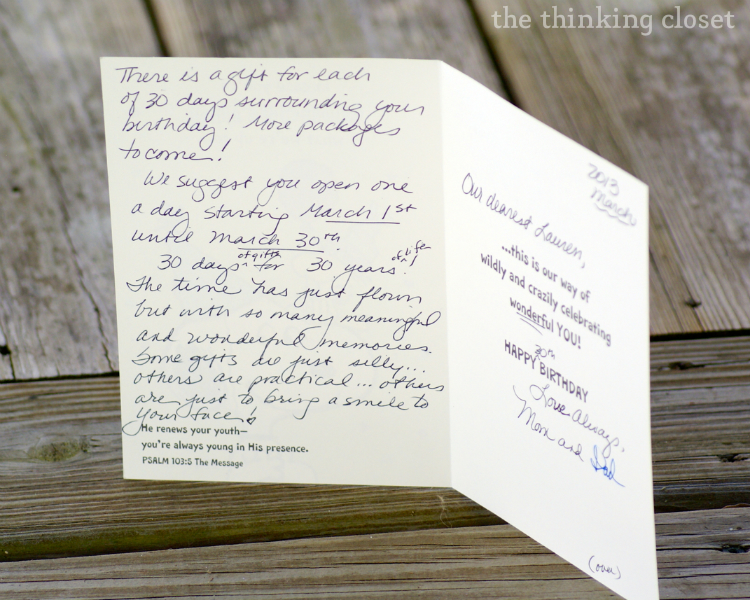 the thinking closet
There is a gift for each
of 30 days surrounding your
birthday! More packages
to come!
We suggest you open one
a day starting March 1st
until March 30th.
30 days of gifts for 30 years of life!
The time has just flown
but with so many meaningful
and wonderful memories.
Some gifts are just silly...
others are practical... others
are just to bring a smile to
your face!
He renews your youth—
you're always young in His presence.
PSALM 103:5 The Message
2013
March
Our dearest Lauren,
...this is our way of
wildly and crazily celebrating
wonderful YOU!
HAPPY 30th BIRTHDAY
Love always,
Mom and Dad
(over)